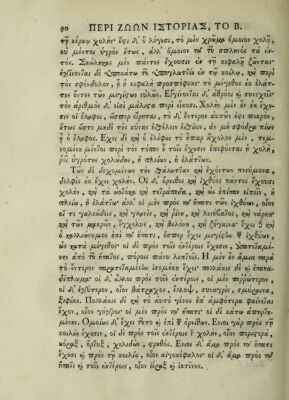 90 ΠΕΡΙ ΖΩΩΝ ΙΣΤΟΡΙΑΣ, ΤΟ Β.
τῇ κέρκῳ χολήν· ἔχει δ' ὃ λέγουσι, τὸ μὲν χρῶμα ὅμοιον χολῇ,
οὐ μέντοι ὑγρὸν οὕτως, ἀλλ' ὅμοιον τῷ τοῦ σπληνὸς τὰ ἐν
τός. Σκώληκας μὲν πάντες ἔχουσιν ἐν τῇ κεφαλῇ ζῶντας·
ἐγγίνονται δὲ ὑποκάτω τοῦ ὑπογλωττίου ἐν τῷ κοίλῳ, καὶ περὶ
τὸν σφόνδυλον, ᾗ ἡ κεφαλὴ προσπέφυκε· τὸ μέγεθος οὐκ ἐλάτ
τους ὄντες τῶν μεγίστων εὐλῶν. Ἐγγίνονται δ' ἀθρόοι συνεχεῖς
τὸν ἀριθμὸν δ' εἰσὶ μάλιστα περὶ εἴκοσι. Χολὴν μὲν οὖν οὐκ ἔχου
σιν οἱ ἔλαφοι, ὥσπερ εἴρηται, τὸ δ' ἔντερον αὐτῶν ἐστι πικρὸν,
ὥστε μηδὲ τὰς κύνας ἐθέλειν ἐσθίειν, ἂν μὴ σφόδρα πίων
ᾖ ὁ ἔλαφος. Ἔχει δὲ καὶ ὁ ἐλέφας τὸ ἧπαρ ἄχολον μὲν, τεμνο
μένου μέντοι περὶ τὸν τόπον οὗ τοῖς ἔχουσιν ἐπιφύεται ἡ χολὴ,
ῥεῖ ὑγρότης χολώδης, ἢ πλείων, ἢ ἐλάττων.
Τῶν δὲ δεχομένων τὴν θάλατταν καὶ ἐχόντων πνεύμονα,
δελφὶς οὐκ ἔχει χολήν. Οἱ δ' ὄρνιθες καὶ ἰχθύες πάντες ἔχουσι
χολὴν, καὶ τὰ ᾠοτόκα καὶ τετράποδα, καὶ ὡς ἐπίπαν εἰπεῖν, ἢ
πλείω, ἢ ἐλάττω· ἀλλ' οἱ μὲν πρὸς τῷ ἥπατι τῶν ἰχθύων, οἷον
οἵ τε γαλεώδεις, καὶ γλάνις, καὶ ῥίνη, καὶ λειόβατος, καὶ νάρκη·
καὶ τῶν μακρῶν, ἐγχέλυς, καὶ βελόνη, καὶ ζύγαινα· ἔχει δὲ καὶ
ὁ καλλιώνυμος ἐπὶ τῷ ἥπατι, ὥσπερ ἔχει μεγίστην τῶν ἰχθύων
ὡς κατὰ μέγεθος· οἱ δὲ πρὸς τοῖς ἐντέροις ἔχουσιν, ἀποτεταμέ
νην ἀπὸ τοῦ ἥπατος, πόροις πάνυ λεπτοῖς. Ἡ μὲν οὖν ἀμία παρὰ
τὸ ἔντερον παρατεταμένην ἰσομήκη ἔχει· πολλάκις δὲ καὶ ἐπανα
δίπλωμα· οἱ δ' ἄλλοι πρὸς τοῖς ἐντέροις, οἱ μὲν πορρώτερον,
οἱ δ' ἐγγύτερον, οἷον βάτραχος, ἔλλοψ, συναγρὶς, σμύραινα,
ξιφίας. Πολλάκις δὲ καὶ τὸ αὐτὸ γένος ἐπ' ἀμφότερα φαίνεται
ἔχον, οἷον γόγγροι· οἱ μὲν πρὸς τῷ ἥπατι· οἱ δὲ κάτω ἀπηρτη
μένην. Ὁμοίως δ' ἔχει τοῦτο καὶ ἐπὶ τῶν ὀρνίθων. Ἔνιοι γὰρ πρὸς τῇ
κοιλίᾳ ἔχουσιν, οἱ δὲ πρὸς τοῖς ἐντέροις τὴν χολὴν, οἷον περιστερὰ,
κόραξ, ὄρτυξ, χελιδὼν, στρουθός. Ἔνιοι δ' ἅμα πρὸς τῷ ἥπατι
ἔχουσι καὶ πρὸς τῇ κοιλίᾳ, οἷον αἰγοκέφαλος· οἱ δ' ἅμα πρὸς τῷ
ἥπατι καὶ τοῖς ἐντέροις, οἷον ἱέραξ καὶ ἰκτῖνος.